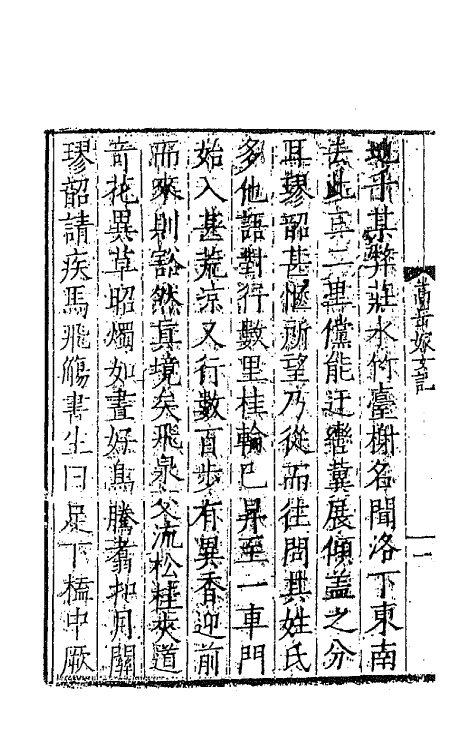 嵩岳嫁女記
一
地乎某弊莊水竹臺榭名聞洛下東南
去此直二里儻能迂轡冀展傾盖之分
耳璆韶甚愜所望乃從而往問其姓氏
多他語對行數里桂輪已昇至一車門
始入甚荒凉又行數百步有異香迎前
而來則豁然真境矣飛泉交流松桂夾道
奇花異草昭燭如晝好鳥騰翥和月闢
璆韶請疾馬飛觴書生曰足下榼中厥